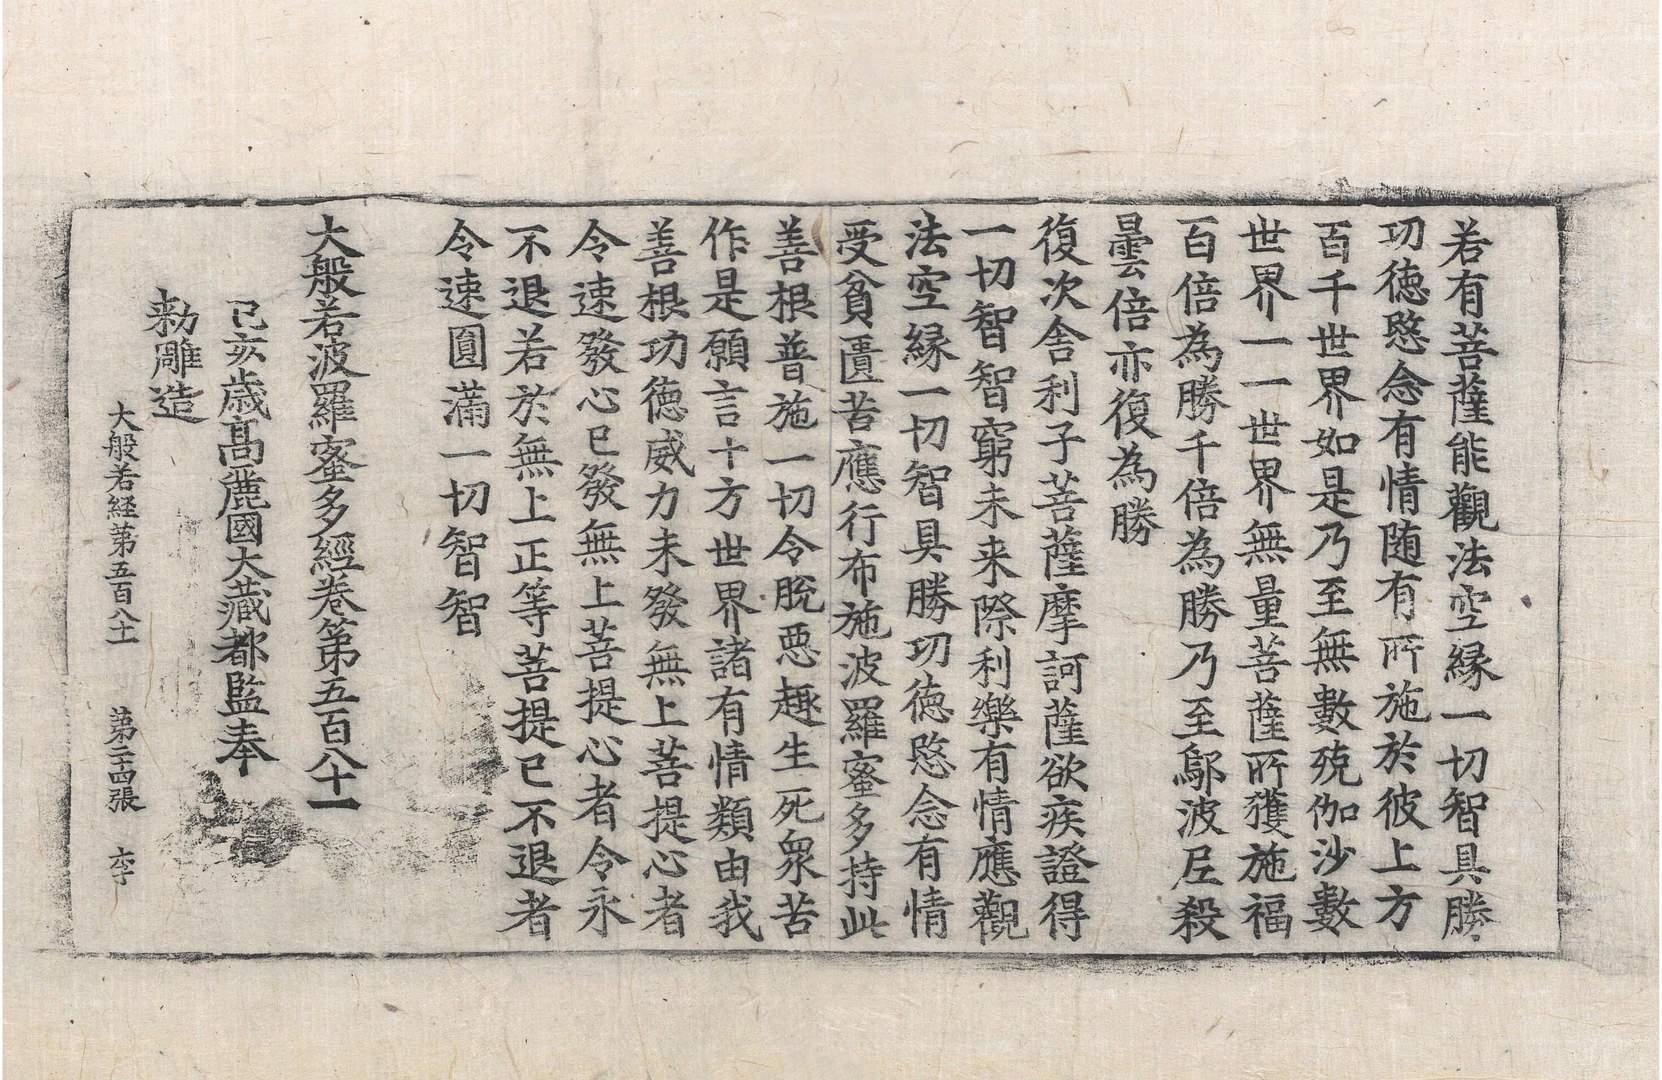 若有菩薩能觀法空縁一切智具勝
功徳愍念有情随有所施於彼上方
百千世界如是乃至無數殑伽沙數
世界一一世界無量菩薩所獲施福
百倍為勝千倍為勝乃至鄔波尼殺
曇倍亦復為勝
復次舎利子菩薩摩訶薩欲疾證得
一切智智窮未来際利樂有情應觀
法空縁一切智具勝功徳愍念有情
受貧匱苦應行布施波羅蜜多持此
善根普施一切令脫惡趣生死衆苦
作是願言十方世界諸有情類由我
善根功徳威力未發無上菩提心者
令速發心已發無上菩提心者令永
不退若於無上正等菩提已不退者
令速圓滿一切智智
大般若波羅蜜多經卷第五百八十一
己亥歳髙麗國大藏都監奉
勑雕造
大般若経第五百八十一 第二十四張 李